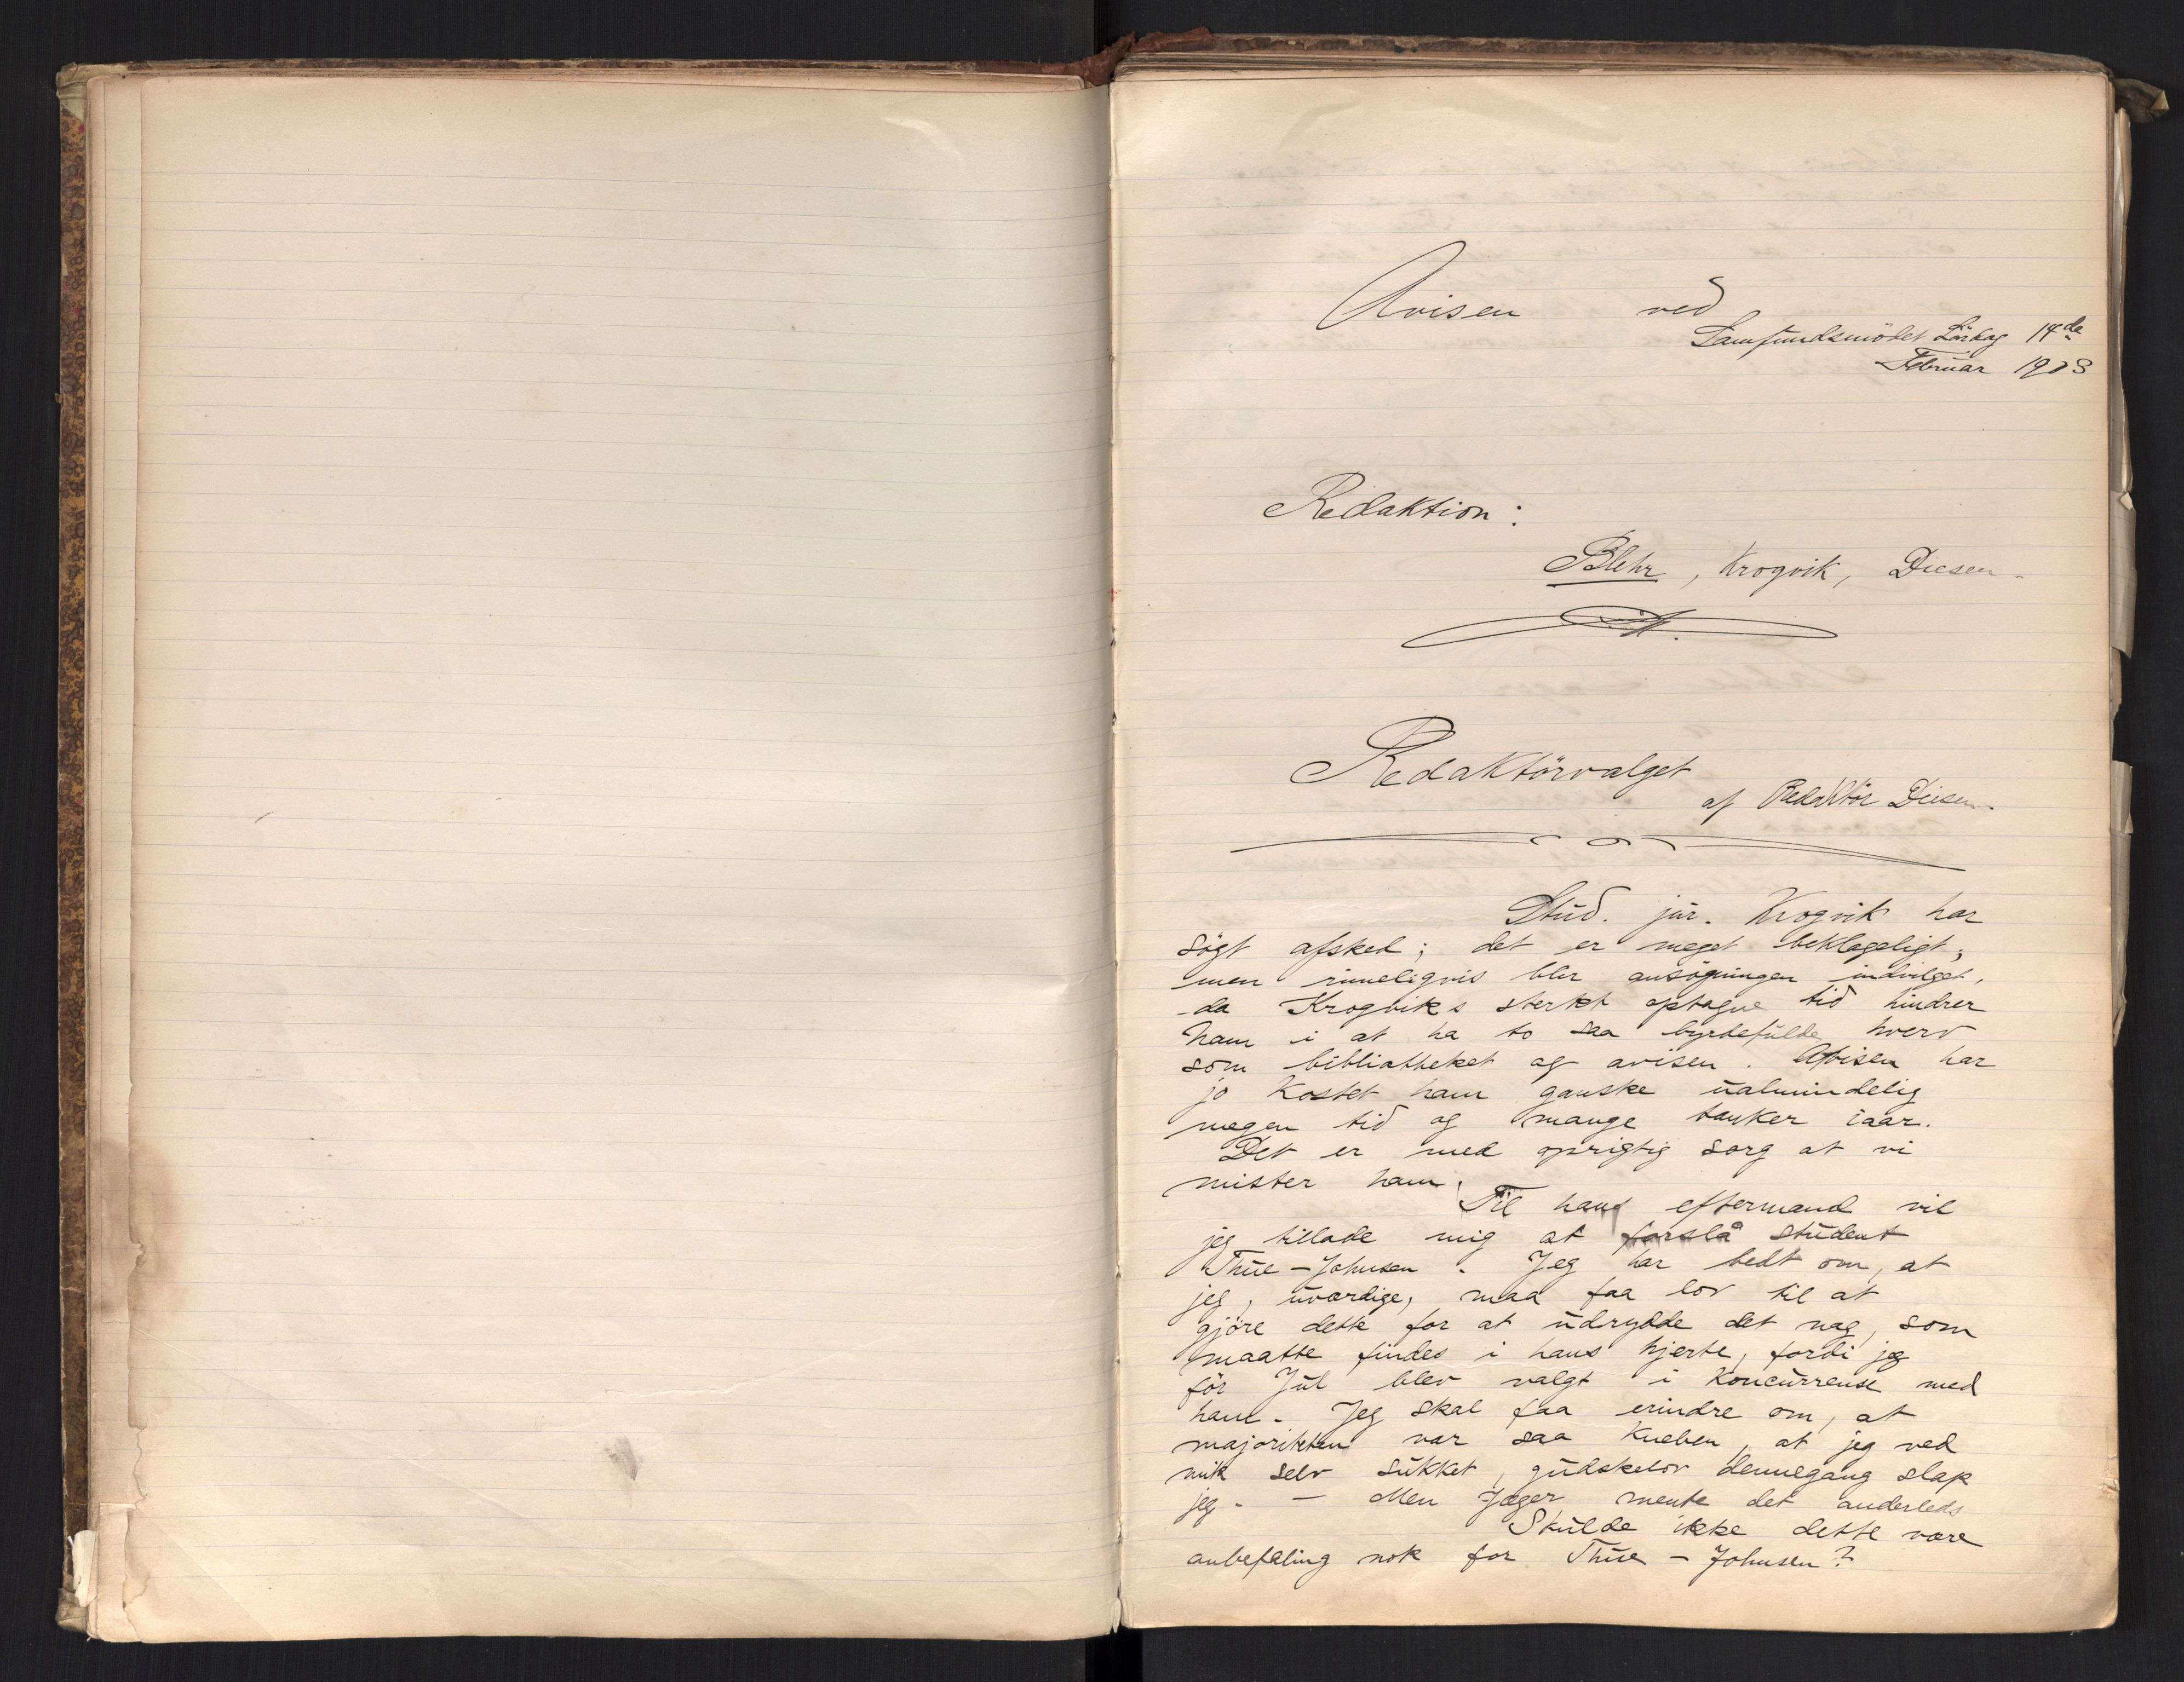 Avisen ved
Samfundsmödet Lördag 14de
Februar 1903
Redaktion:
Blehr, Krogvik, Diesen.
Redaktörvalget
af Redaktör Diesen.
Stud. jur. Krogvik har
sögt afsked; det er meget beklageligt,
men rimeligvis blir ansögningen indvilget,
da Krogviks sterkt optagne tid hindrer
ham i at ha to saa byrdefulde hverv
som bibliotheket og avisen. Avisen har
jo kostet ham ganske ualmindelig
megen tid og mange tanker iaar.
Det er med oprigtig sorg at vi
mister ham.
Til hans eftermand vil
jeg tillade mig at forslå student
Thue-Johnsen. Jeg har bedt om, at
jeg, uværdige, maa faa lov til at
gjöre dette for at udrydde det nag, som
maatte findes i hans hjerte, fordi jeg
för Jul blev valgt i koncurrense med
ham. Jeg skal faa erindre om, at
majoriteten var saa kneben, at jeg ved
mik selv sukket, gudskelov dennegang slap
jeg. — Men Jæger mente det anderleds
Skulde ikke dette være
anbefaling nok for Thue-Johnsen?